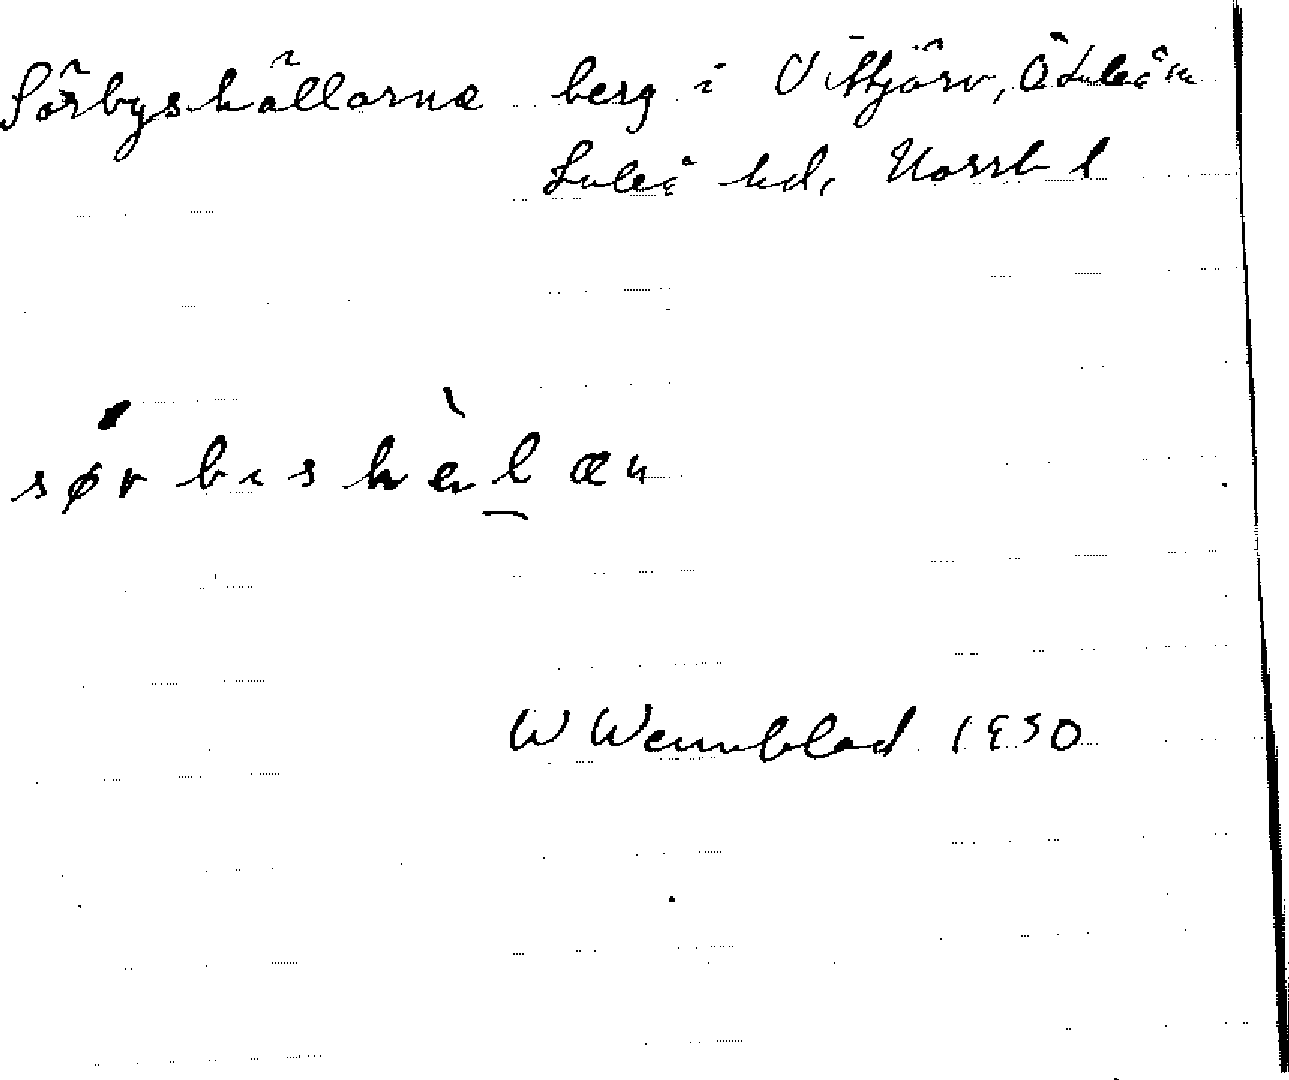 Sörbyshällarna berg i Vittjärv, Ö Luleå sn
Luleå hd, Norrb l
sørbishælæn
W Wennblad 1930